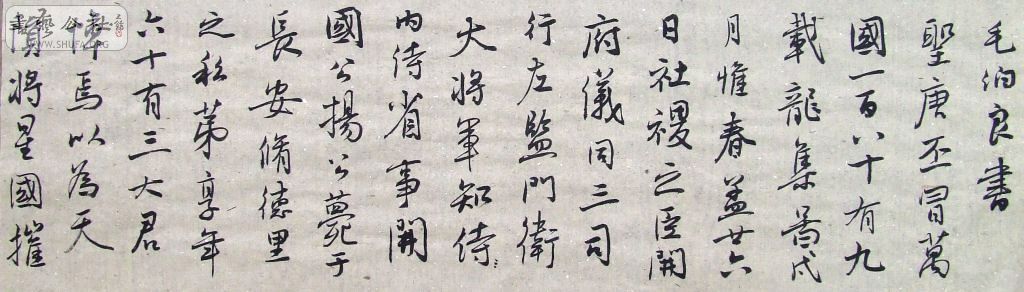 毛伯良書
聖唐丕冒萬
國一百八十有九
載龍集景戌
月惟春盖廿六
日社禝之臣開
府儀同三司
行左監門衛
大將軍知侍
內侍省事開
國公揚公薨于
長安脩德里
之私苐享年
六十有三大君
悼焉以為天
將星國摧
WWW.SHUFA.ORG